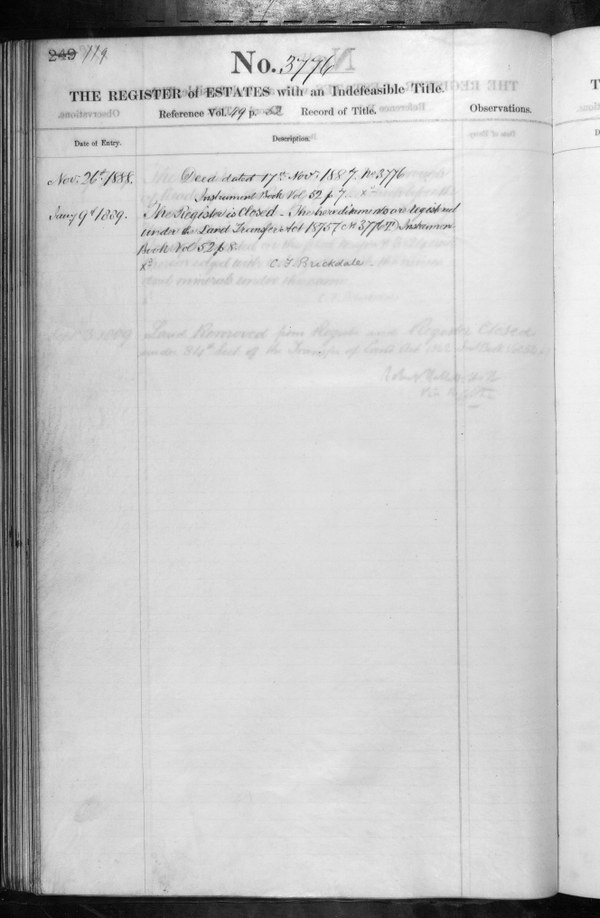 249 119
No. 3776
THE REGISTER of ESTATES with an Indefeasible Title.
Reference Vol. 49 p. 52 Record of Title.
Observations.
Date of Entry.
Description.
Nov. 26th 1888. Deed dated 17th Novr 1887. No 3776
Instrument Book Vol. 52 p. 7. x
Jany 9th 1889. The Register is Closed. The hereditaments are registered
under the Land Transfer Act 1875
Book Vol 52 p. 8
C F Brickdale.
Land Removed from Register and Register Closed
under 34th Sect. of the Transfer of Land Act 1862